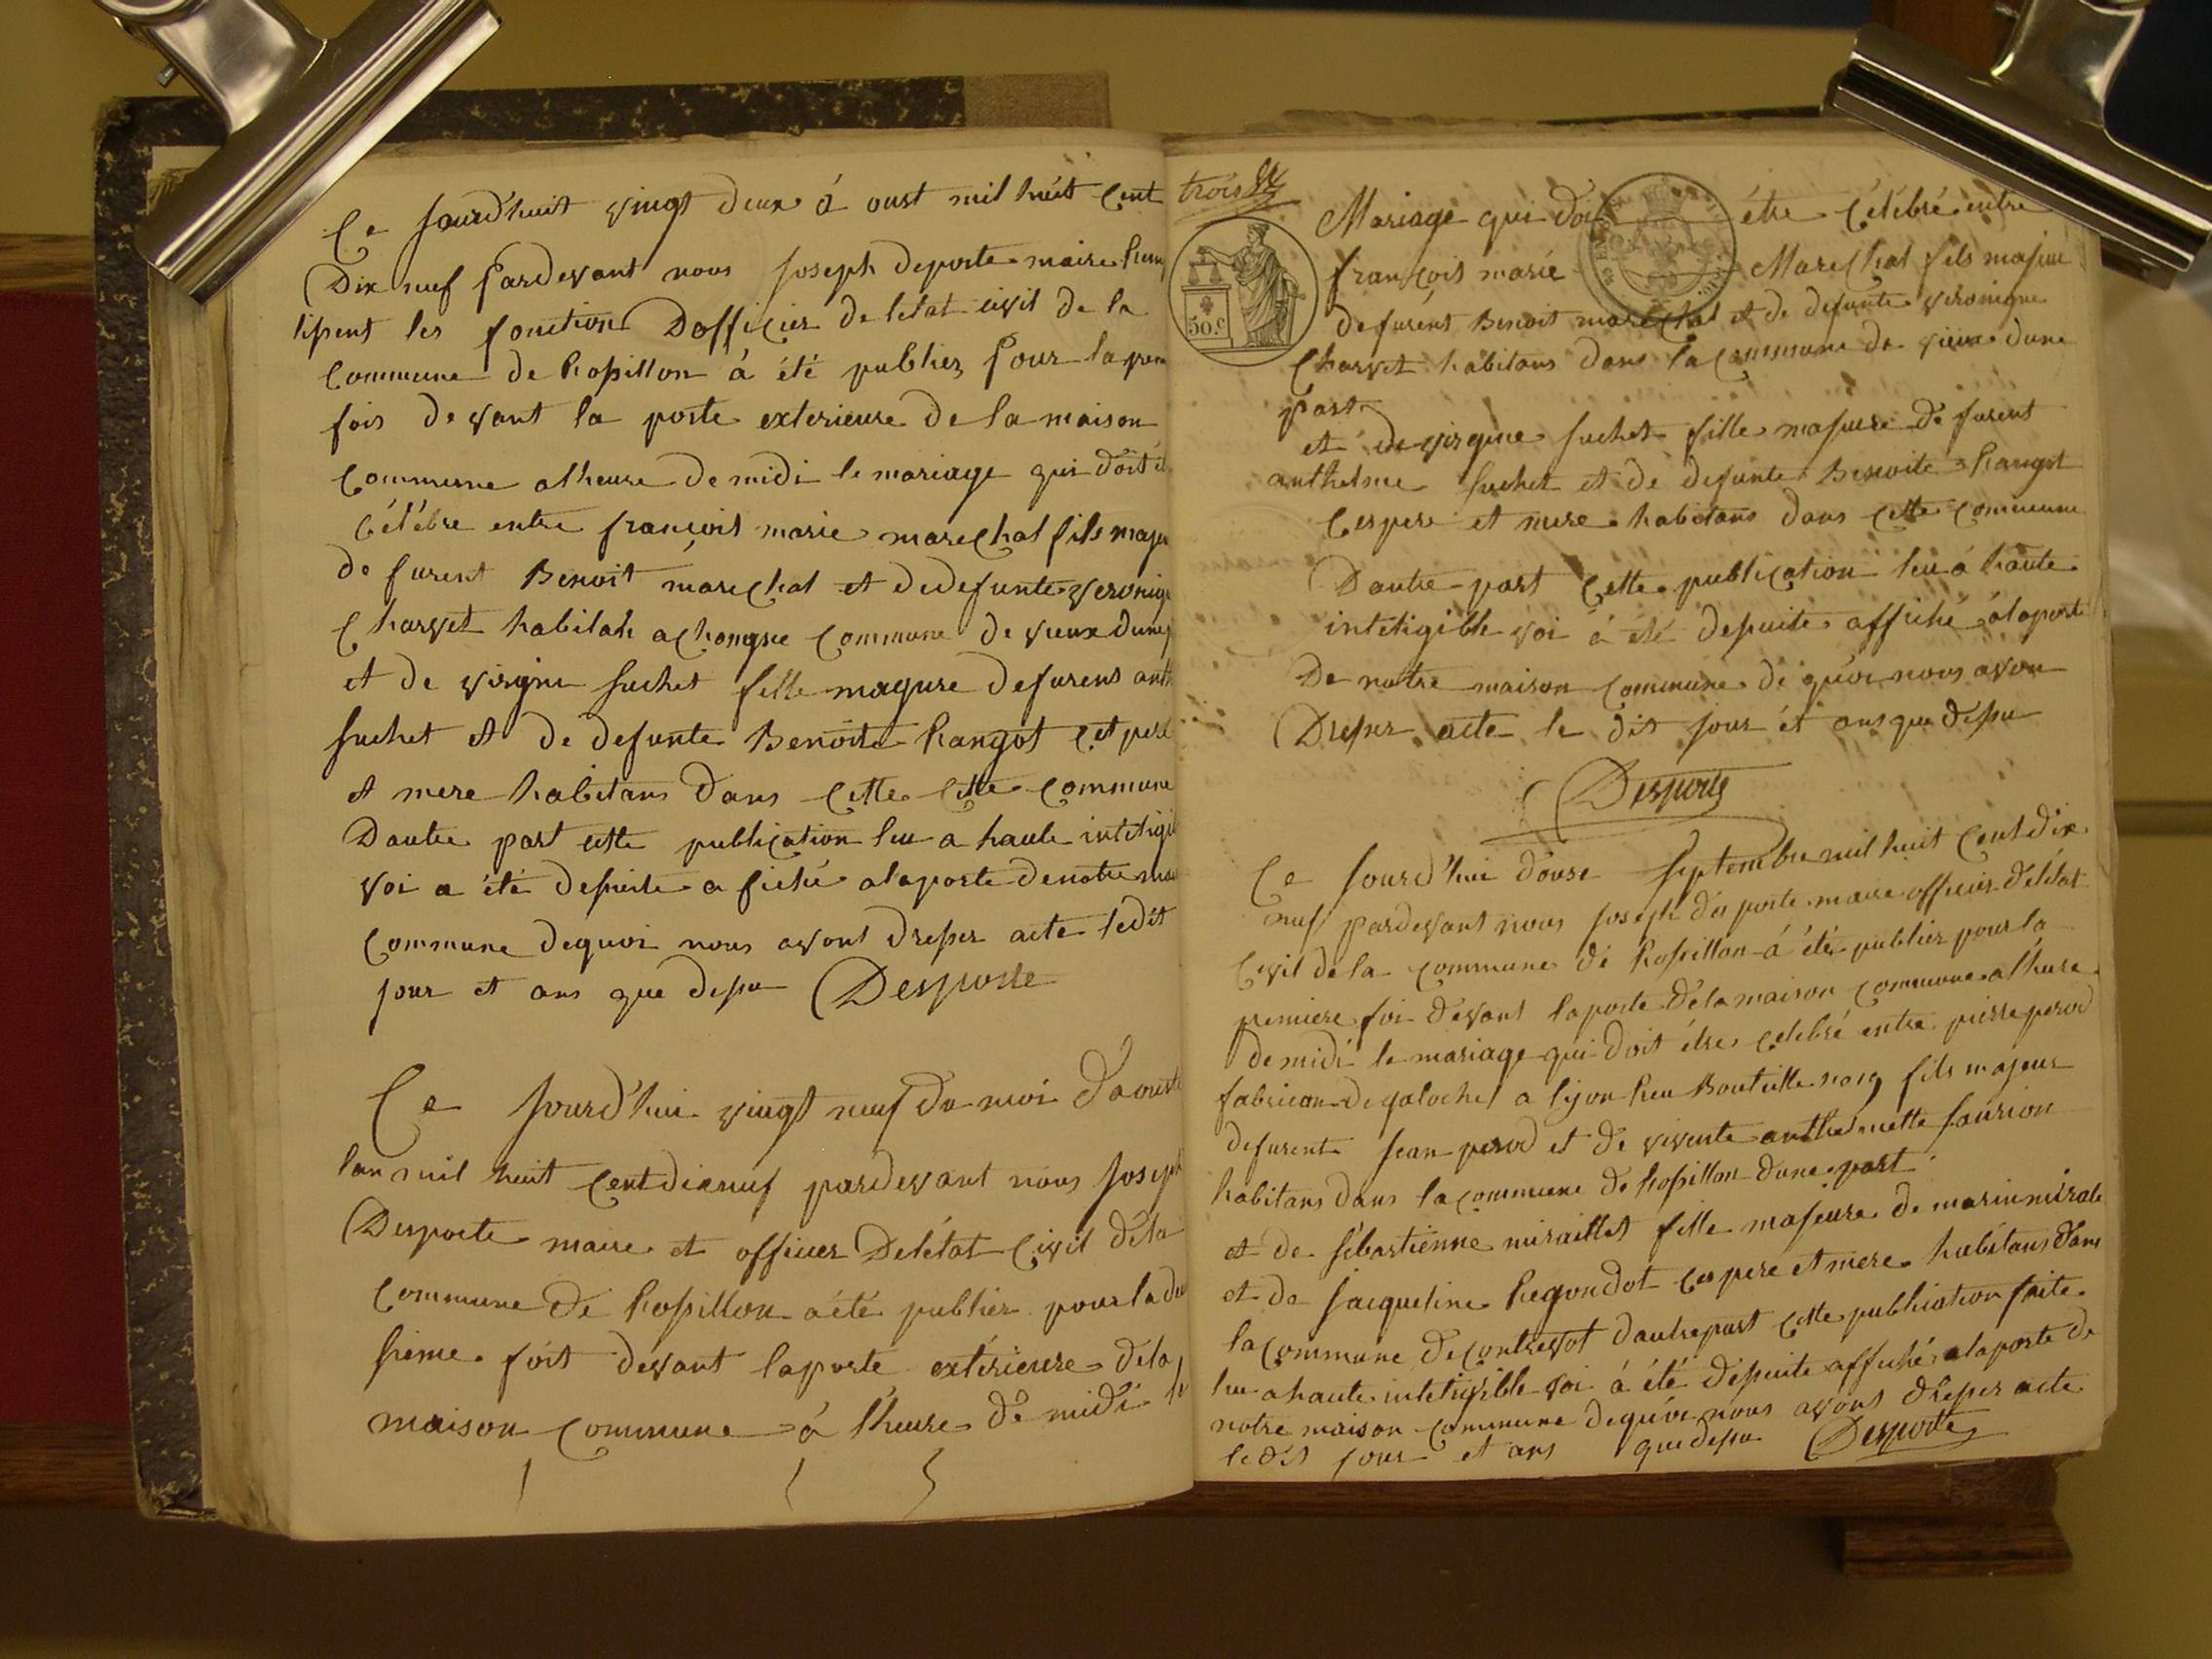 Ce Jourd'huit vingt deux á oust mil huit Cent
Dix neuf pardevant nous Joseph deporte maire
les fonction D'officier de létat civil de la
Commune de Rossillon á été publiez pour la
fois devant la porte exterieure de la maison
Commune alheure de midi le mariage qui doit
Célébre entre françois marie marechal fils
de furent Benoit marechal et de defunte
Charvet habitah a Chongne Commune de vieux
et de virgine Suchet fille magure defurent
Suchet et de defunte Benoite Rangot Cet pere
et mere habitans dans Cette Cette Commune
Dautre part cette publication lu a haute
voi a été desuite a fiché alaporte denotre
Commune dequoi nous avont dresser acte ledit
jour et ans que desu Desporte
Ce Jourd'hui vingt neuf du moi D'aoust
lan mil huit Cent dixneuf pardevant nous Joseph
Desporte maire et officier Delétat Civil dela
Commune de Rossillon aété publier pour la
sieme foit devant laporte extérieure dela
maison Commune á l'heure de midi le
trois
50.c
Mariage qui doi être Célébré entre
françois marie Marechal fils majeur
defurent Benoit marechal et de defunte veronique
Charvet habitans dans la Commune de vieux dune
part
et de virgine Suchet fille majeure de furent
anthelme Suchet et de defunte Benoite Rangot
Ces pere et mere habitans dans Cette Commune
Dautre part Cette publication lu á haute
inteligible voi á été desuite affiché álaporte
De notre maison Commune de quoi nous avon
Dresser acte le dit jour et ans que desu
Desporte
Ce Jourd'hui douse Septembre mil huit Cent dix
neuf pardevant nous Joseph des porte maire officier délétat
Civil de la Commune de Rossillon á été publier pour la
premiere foi devant laporte dela maison Commune alheure
de midi le mariage qui doit étre celebré entre pierre perod
fabrican de galoche a lyon Rue Bouteille fils majeur
defurent Jean perod et de vivente anthelmette faurion
habitans dans la Commune de Rossillon dune part
et de Sébastienne miraillet fille majeure de
et de Jacqueline Regondot Ces pere et mere habitans dans
la Commune de Contrevot dautrepart Cette publication faite
lu a haute inteligible voi á été desuite affiché alaporte de
notre maison Commune dequoi nous avons dresser acte
le dit jour et ans que desu Desporte